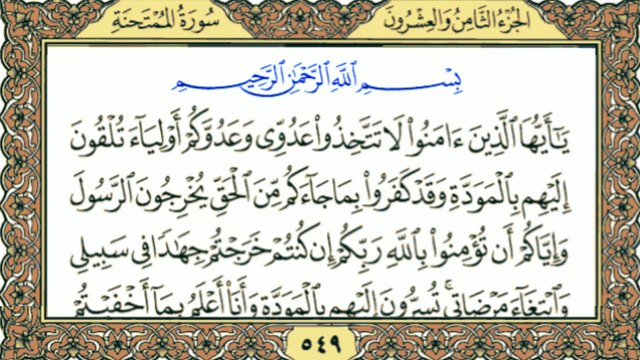 الجزء الثامن والعشرون
سورة الممتحنة
بِسْمِ اللَّهِ الرَّحْمَٰنِ الرَّحِيمِ
يَا أَيُّهَا الَّذِينَ ءَامَنُوا لَا تَتَّخِذُوا عَدُوِّى وَعَدُوَّكُمْ أَوْلِيَاءَ تُلْقُونَ
إِلَيْهِم بِالْمَوَدَّةِ وَقَدْ كَفَرُوا بِمَا جَاءَكُم مِّنَ الْحَقِّ يُخْرِجُونَ الرَّسُولَ
وَإِيَّاكُمْ أَن تُؤْمِنُوا بِاللَّهِ رَبِّكُمْ إِن كُنتُمْ خَرَجْتُمْ جِهَادًا فِى سَبِيلِى
وَابْتِغَاءَ مَرْضَاتِى ۚ تُسِرُّونَ إِلَيْهِم بِالْمَوَدَّةِ وَأَنَا أَعْلَمُ بِمَا أَخْفَيْتُمْ
٥٤٩